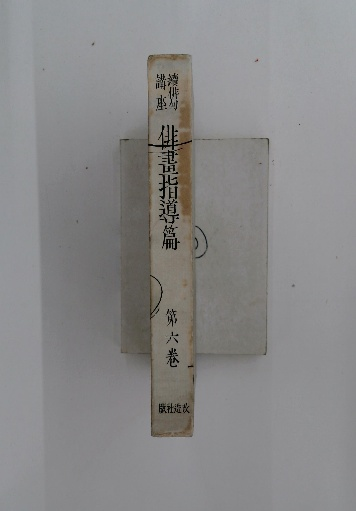 續俳句
講座
俳畫指導篇
第六卷
改造社版